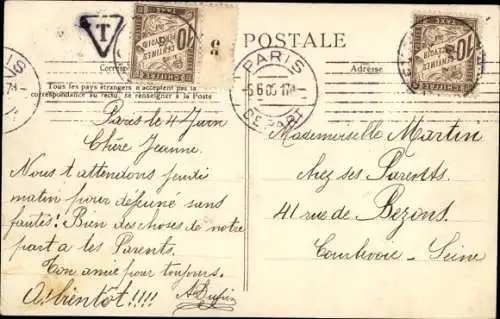 T
10
CENTIMES
À PERCEVOIR
8
POSTALE
10
CENTIMES
À PERCEVOIR
PARIS
5-6 05
DEPART
Adresse
Tous les pays étrangers n'acceptent pas la
correspondance au recto, se renseigner à la Poste
Paris le 4 Juin
Chère Jeanne.
Nous t'attendons jeudi
matin pour déjeuné sans
fautes! Bien des choses de notre
part a tes Parents.
Ton amie pour toujours.
A bientôt!!!!
Mademoiselle Martin
chez ses Parents.
41 rue de Bezons.
Courbevoie - Seine